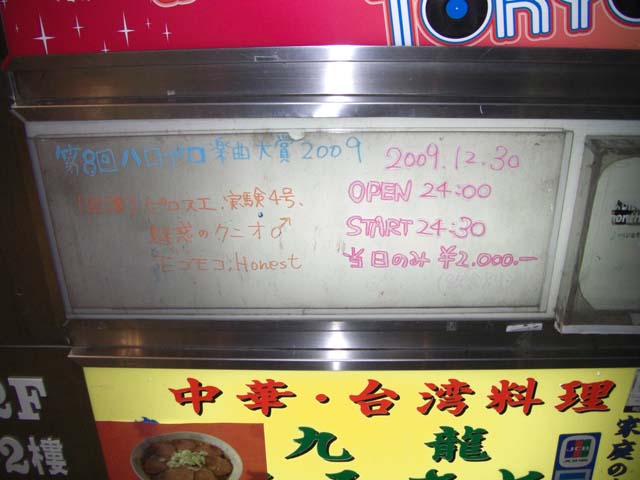 TOKYO
第8回ハロプロ楽曲大賞2009
2009.12.30
[出演]ピロスエ、実験4号、
魅惑のクニオ♂
モコモコ、Honest
OPEN 24:00
START 24:30
当日のみ ¥2.000.—
2F
2樓
中華・台湾料理
九龍
JCB
家庭の